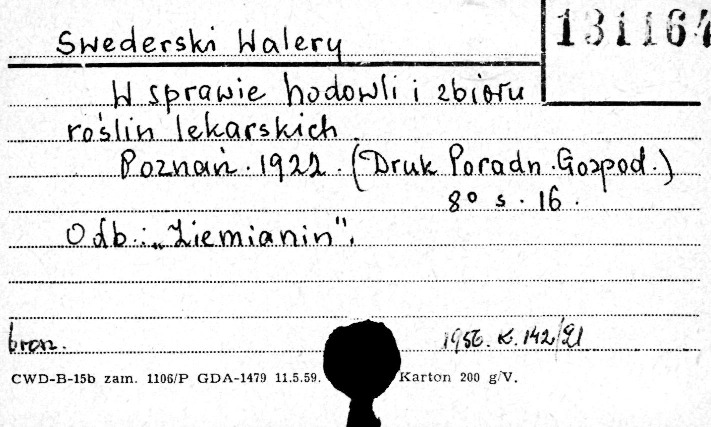 Swederski Walery
131164
W sprawie hodowli i zbioru
roślin lekarskich.
Poznań. 1922. (Druk Poradn. Gospod.)
8° s. 16.
Odb.: „Ziemianin".
brosz.
1956. K. 142/21
CWD-B-15b zam. 1106/P GDA-1479 11.5.59. Karton 200 g/V.